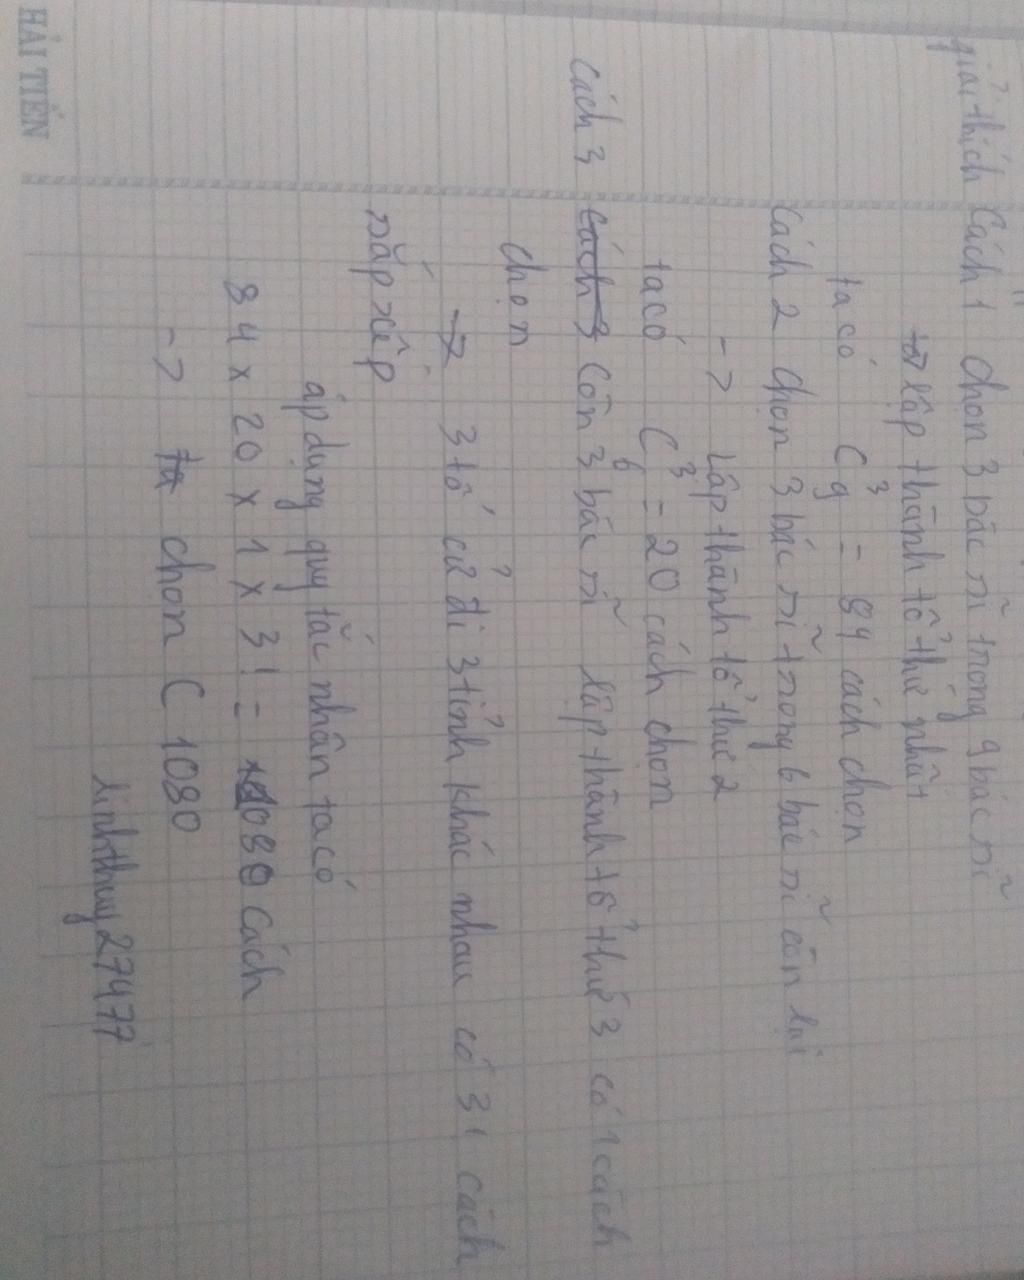 giải thích Cách 1 chọn 3 bác sĩ trong 9 bác sĩ
lập thành tổ thứ nhất
ta có C³₉ = 84 cách chọn
Cách 2 chọn 3 bác sĩ trong 6 bác sĩ còn lại
-> Lập thành tổ thứ 2
ta có C³₆ = 20 cách chọn
Cách 3 Cách 3 Còn 3 bác sĩ lập thành tổ thứ 3 có 1 cách
chọn
-> 3 tổ cử đi 3 tỉnh khác nhau có 3! cách
sắp xếp
áp dụng quy tắc nhân ta có
84 x 20 x 1 x 3! = 1080 cách
-> chọn C 1080
linhthuy27477
HẢI TIẾN